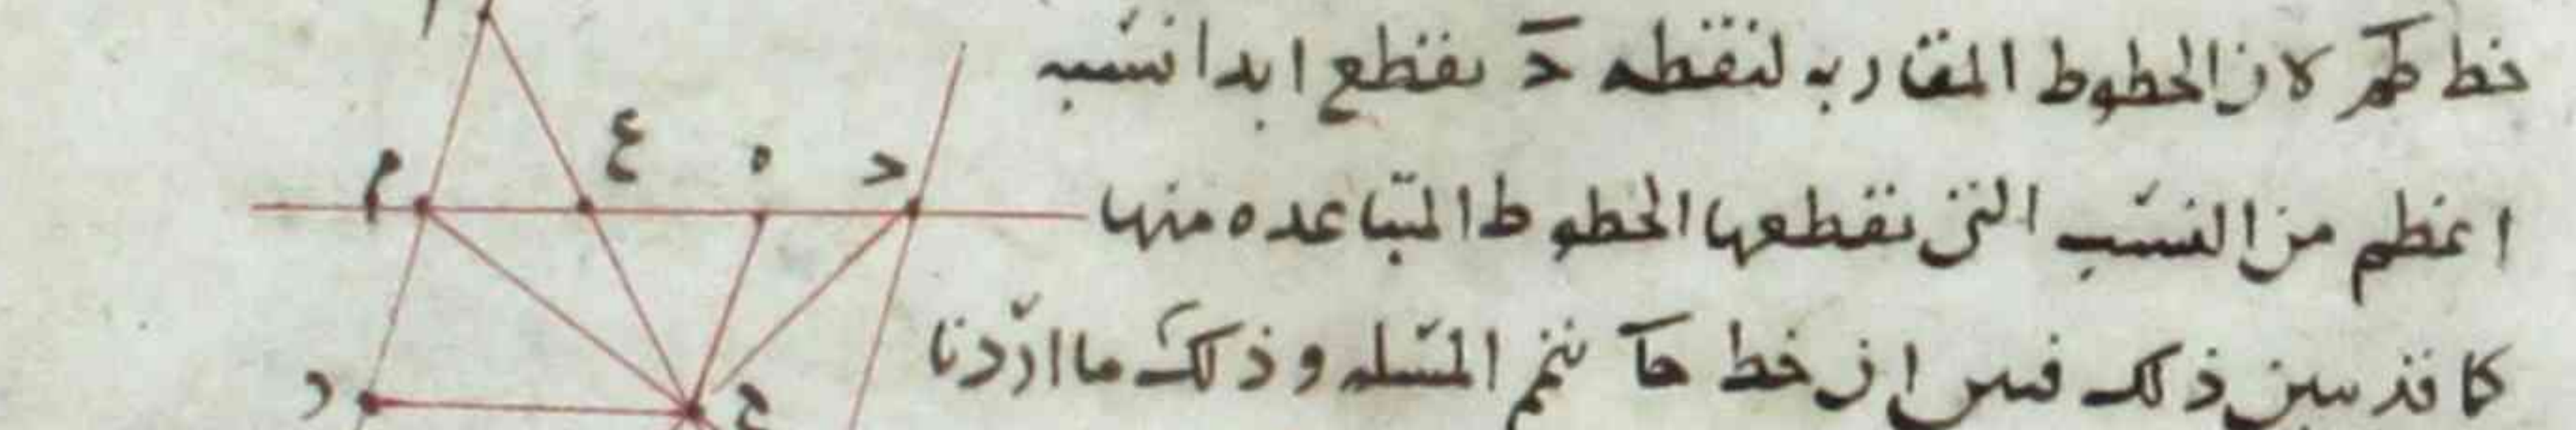 خط طم لان الخطوط المقاربه لنقطه د تقطع ابدا نسبه
اعظم من النسب التى تقطعها الخطوط المتباعده منها
كما قد تبين ذلك فبين ان خط حا تتم المسله وذلك ما اردنا
ا
م ع ه د
د ح